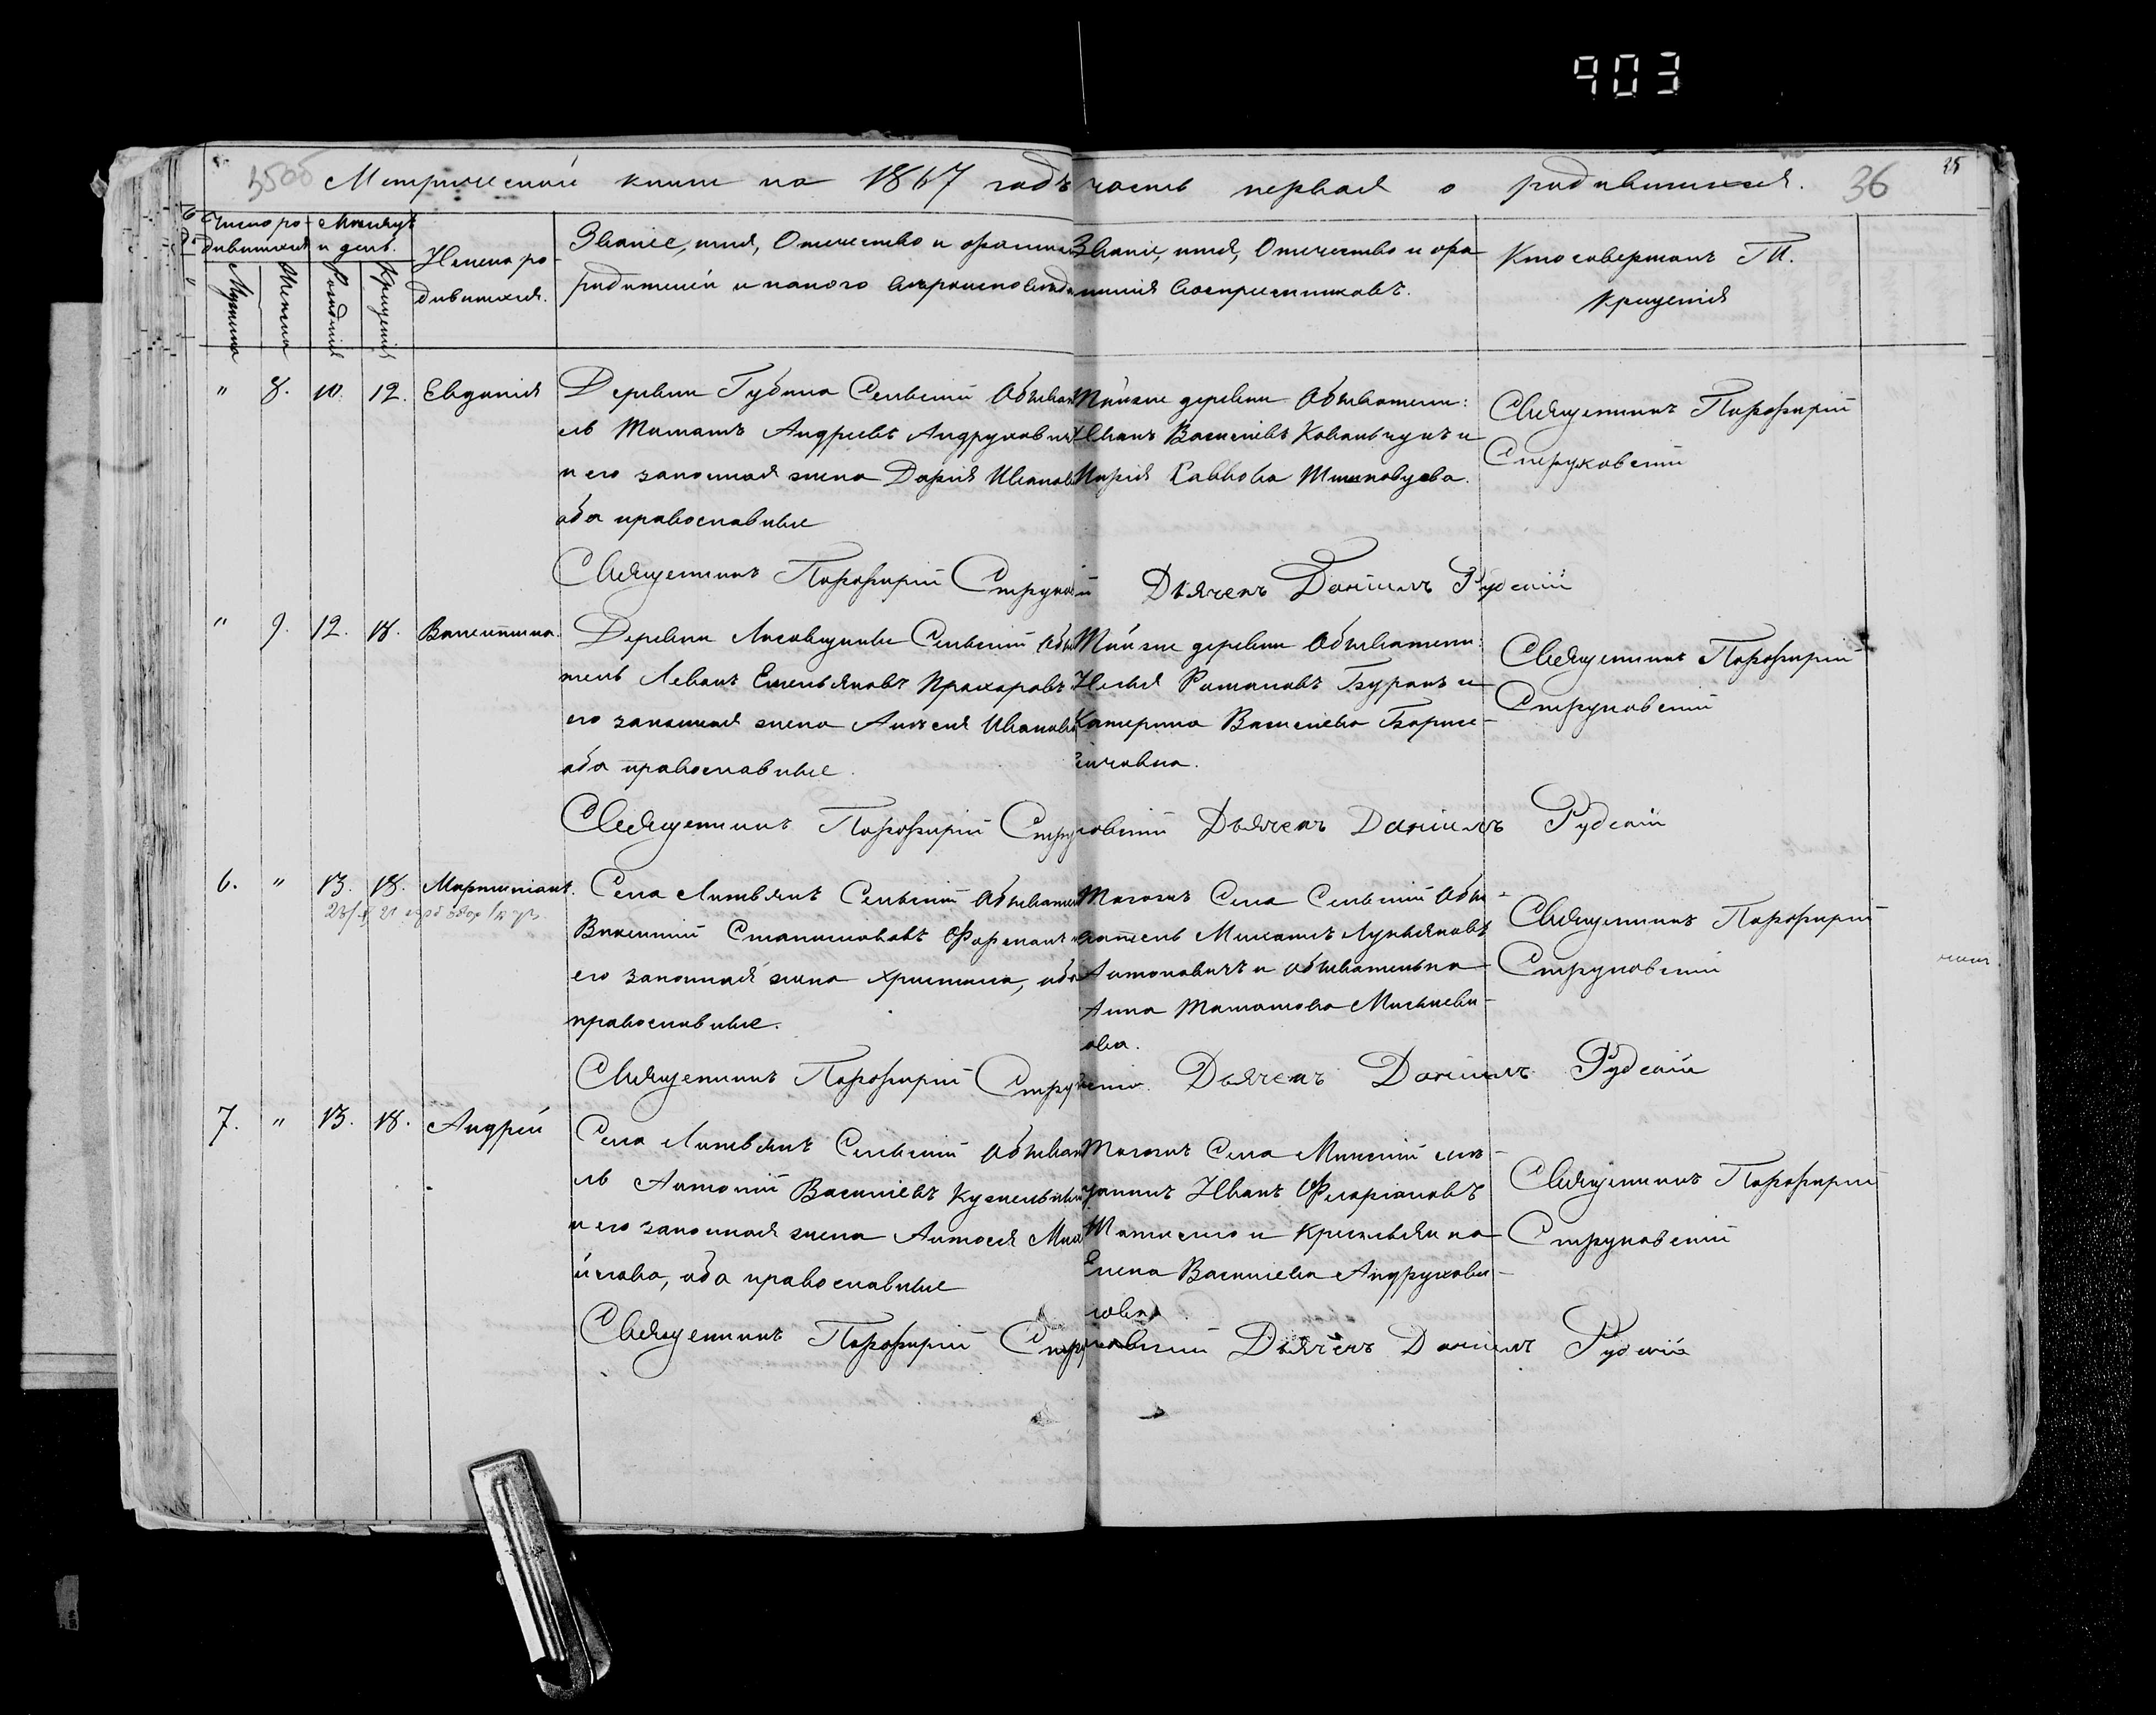 903
Метрической книги на 1867 годъ часть первая о родившихся. 36 25
Число ро-
дившихся
Мѣсяцъ
и день.
Мужска
Женска
Рожденія
Крещенія
Имена ро-
дившихся.
Званіе, имя, Отечество и фамилія
родителей и какого вѣроисповѣда
Званіе, имя, Отечество и фа-
милія воспріемниковъ.
Кто совершалъ Т.
Крещенія
" 8. 10. 12. Евдокія
Деревни Губина Сельскій Обыват
ель Томашъ Андреевъ Андруховичъ
и его законная жена Дарія Иванова
оба православные
Тойже деревни Обыватели:
Иванъ Васильевъ Ковальчукъ и
Марія Саввова
Священникъ Порфирій
Струковскій
Священникъ Порфирій Струковскій Дьячекъ Даніилъ Рудскій
" 9. 12. 18. Валентина.
Деревни Сельскій Обыва
тель Леванъ Емельяновъ Прохоровъ и
его законная жена Анѣля Иванова
оба православные.
Тойже деревни Обыватели:
Илья Романовъ Буракъ и
Катерина Васильева Борисе-
вичовна.
Священникъ Порфирій
Струковскій
Священникъ Порфирій Струковскій Дьячекъ Даніилъ Рудскій
6. " 13. 18. Мартиніанъ.
Села Литвянъ Сельскій Обыватель
Викентій Станиславовъ Фурманъ и
его законная жена Христина, оба
православные.
Тогожъ Села Сельскій Обы-
ватель Михаилъ Лукьяновъ
Антоновичъ и обывателька
Анна Томашова Миськеви-
чова.
Священникъ Порфирій
Струковскій
Священникъ Порфирій Струковскій Дьячекъ Даніилъ Рудскій
7. " 13. 18. Андрей
Села Литвянъ Сельскій Обывате
ль Антоній Васильевъ
и его законная жена Антося Миха
йлова, оба православные
Тогожъ Села Минскій мѣ-
щанинъ Иванъ Флоріановъ
и крестьянка
Елена Васильева Андрухови-
човна
Священникъ Порфирій
Струковскій
Священникъ Порфирій Струковскій Дьячекъ Даніилъ Рудскій